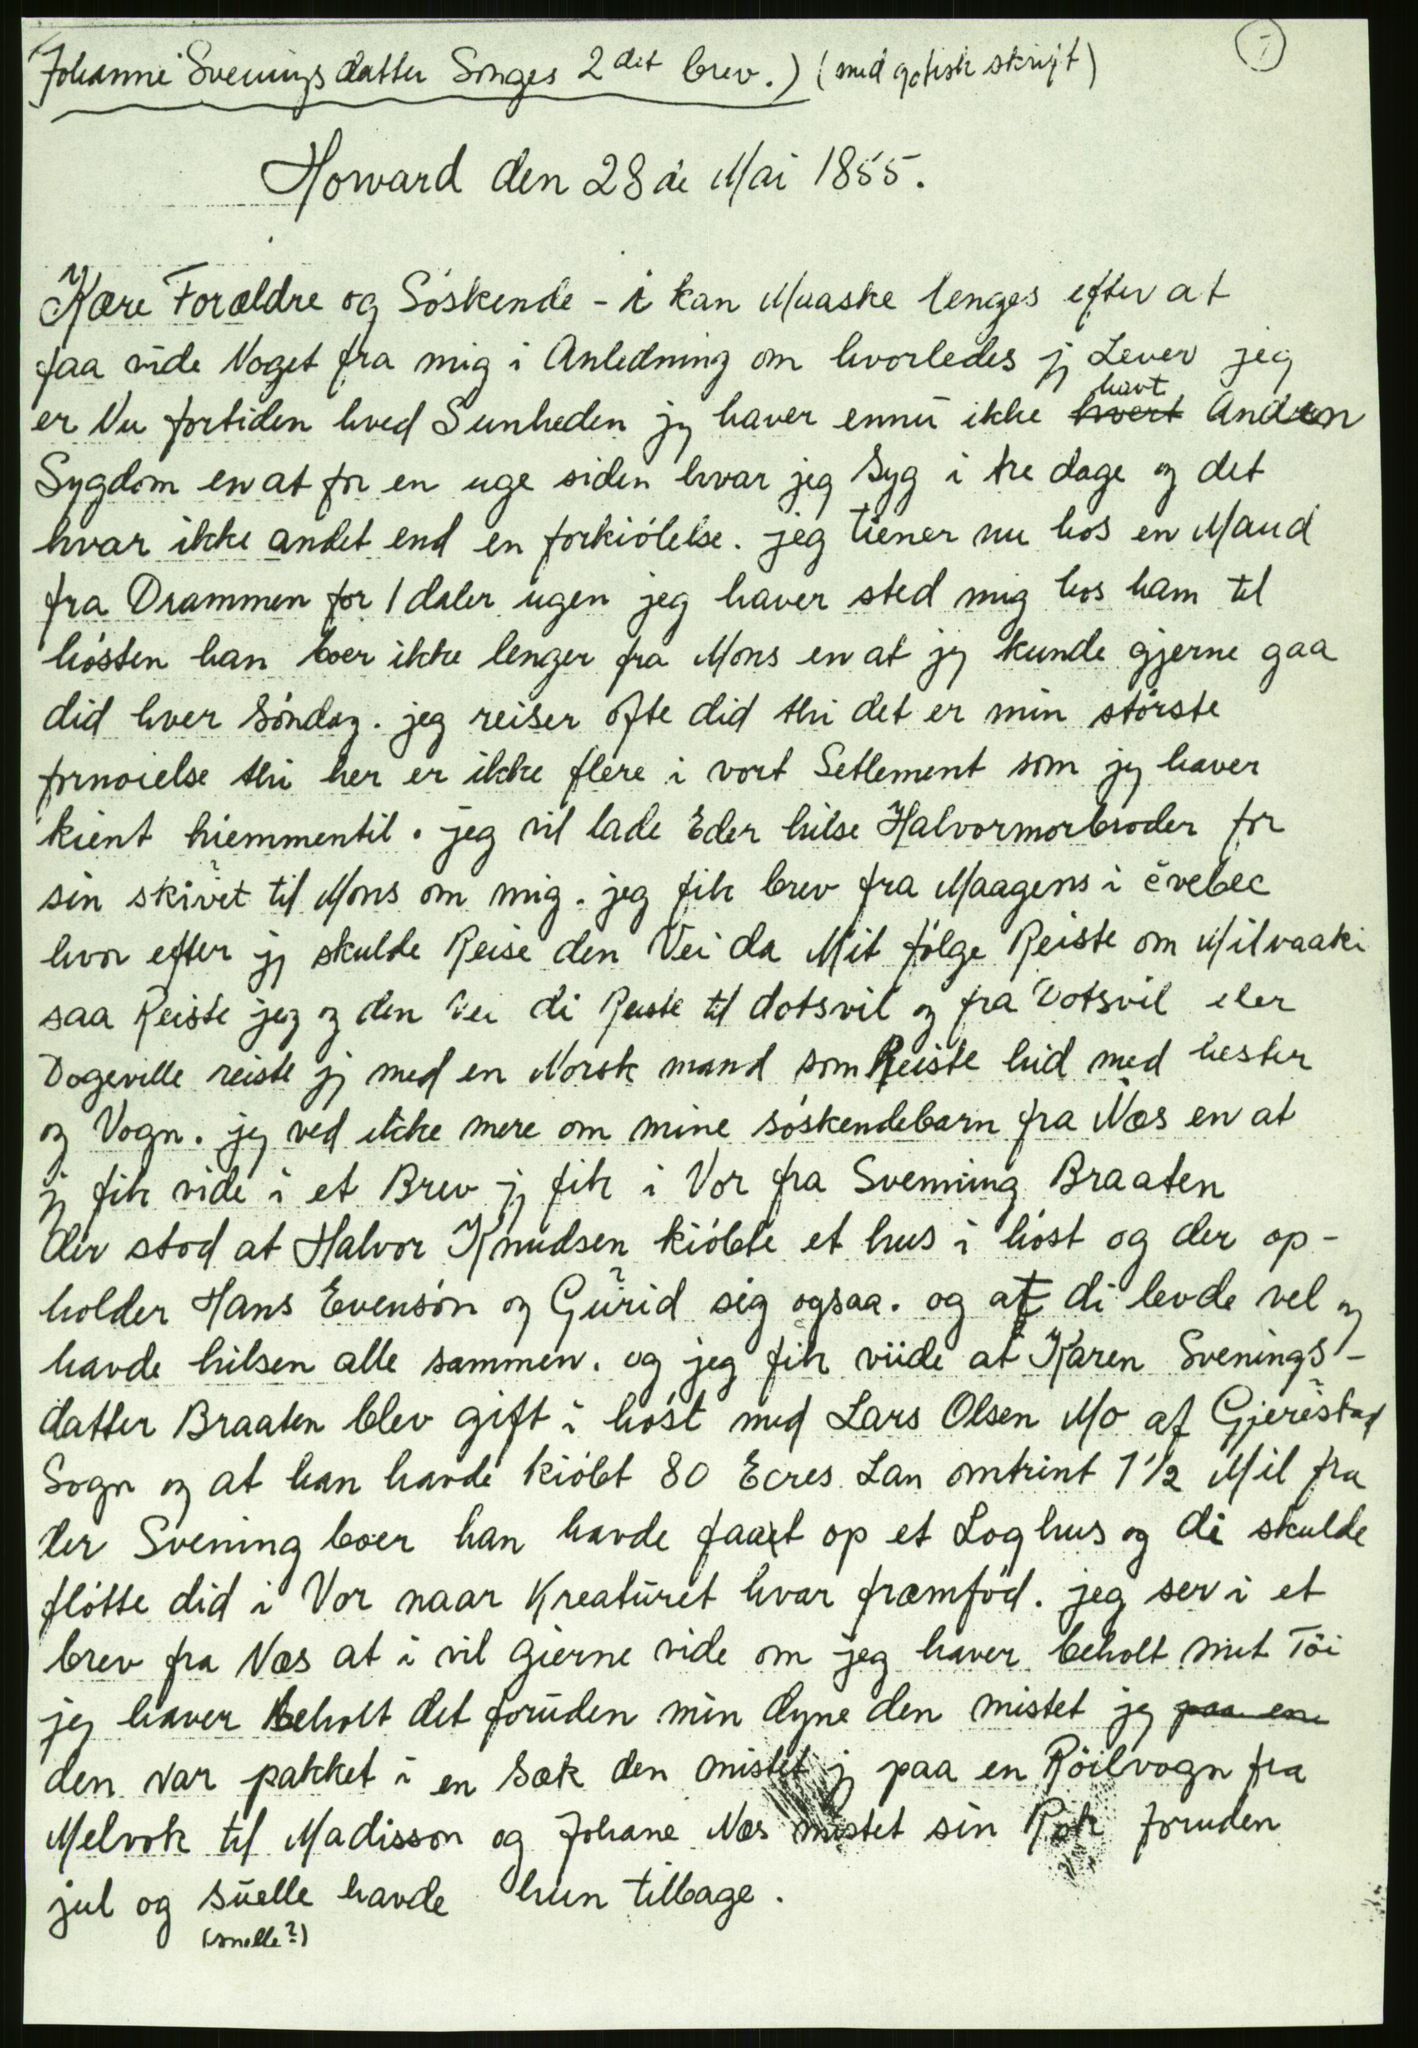 1
Johanne Sveningsdatter Songes 2det brev.) (med gotisk skrift)
Howard den 28de Mai 1855.
Kære Forældre og Söskende - i kan Maaske lenges efter at
faa vide Noget fra mig i Anledning om hvorledes jg Lever jeg
er Nu fortiden hved Sunheden jg haver ennu ikke hvert havt Anden
Sygdom en at for en uge siden hvar jeg Syg i tre dage og det
hvar ikke andet end en forkiölelse. jeg tiener nu hos en Mand
fra Drammen for 1 daler ugen jeg haver sted mig hos ham til
hösten han boer ikke lenger fra Mons en at jg kunde gjerne gaa
did hver Söndag. jeg reiser ofte did thi det er min störste
fornoielse thi her er ikke flere i vort Setlement som jg haver
kient hiemmentil. jeg vil lade Eder hilse Halvormorbroder for
sin skivet ? til Mons om mig. jeg fik brev fra Maagens i evebec
hvor efter jg skulde Reise den Vei da Mit fölge Reiste om Milvaaki
saa Reiste jeg og den Vei di Reiste til dotsvil og fra Dotsvil eler
Dogeville reiste jg med en Norsk mand som Reiste hid med hester
og Vogn. jeg ved ikke mere om mine söskendebarn fra Næs en at
jg fik vide i et Brev jg fik i Vor fra Svenning Braaten
der stod at Halvor Knudsen kiöbte et hus i höst og der op-
holder Hans Evensön og Gurid ? sig ogsaa. og at di levde vel og
havde hilsen alle sammen. og jeg fik viide at Karen Svenings-
datter Braaten blev gift i höst med Lars Olsen Mo af Gjerestad ?
Sogn og at han havde kiöbt 80 Ecres Lan omtrint 1 1/2 Mil fra
der Svening boer han havde faaet op et Loghus og di skulde
flötte did i Vor naar Kreaturet hvar fræmföd. jeg ser i et
brev fra Næs at i vil gierne vide om jeg haver beholt mit Töi
jeg haver beholt det foruden min dyne den mistet jeg paa en
den var pakket i en Sæk den mistet jg paa en Röilvogn fra
Melvok til Madisson og Johane Næs mistet sin Rok foruden
jul og suelle havde hun tilbage.
(snelle?)